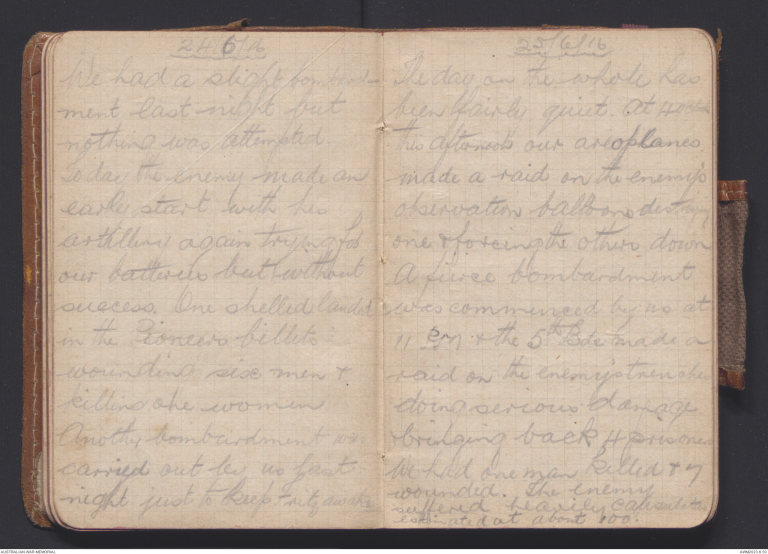 24/6/16
We had a slight bombard-
ment last night but
nothing was attempted.
Today the enemy made an
early start with his
artillery again trying for
our batteries but without
success. One shelled landed
in the Pioneers billets
wounding six men &
killing one women
Another bombardment was
carried out by us last
night just to keep fritz awake
25/6/16
The day on the whole has
been fairly quiet. At 4 oclock
this afternoon our areoplanes
made a raid on the enemy's
observation balloons destroying
one & forcing the others down
A fierce bombardment
was commenced by us at
11 pm & the 5th Bde made a
raid on the enemys trenches
doing serious damage
& bringing back 4 prisoners
We had one man killed & 7
wounded. The enemy
suffered heavily casualties
estimated at about 100.
AUSTRALIAN WAR MEMORIAL